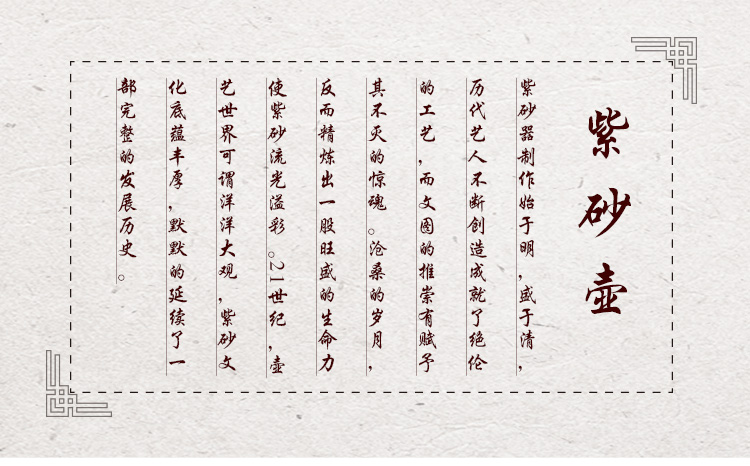 紫砂壶
紫砂器制作始于明，盛于清，
历代艺人不断创造成就了绝伦
的工艺，而文图的推崇有赋予
其不灭的惊魂。沧桑的岁月，
反而精炼出一股旺盛的生命力
使紫砂流光溢彩。21世纪，壶
艺世界可谓洋洋大观，紫砂文
化底蕴丰厚，默默的延续了一
部完整的发展历史。